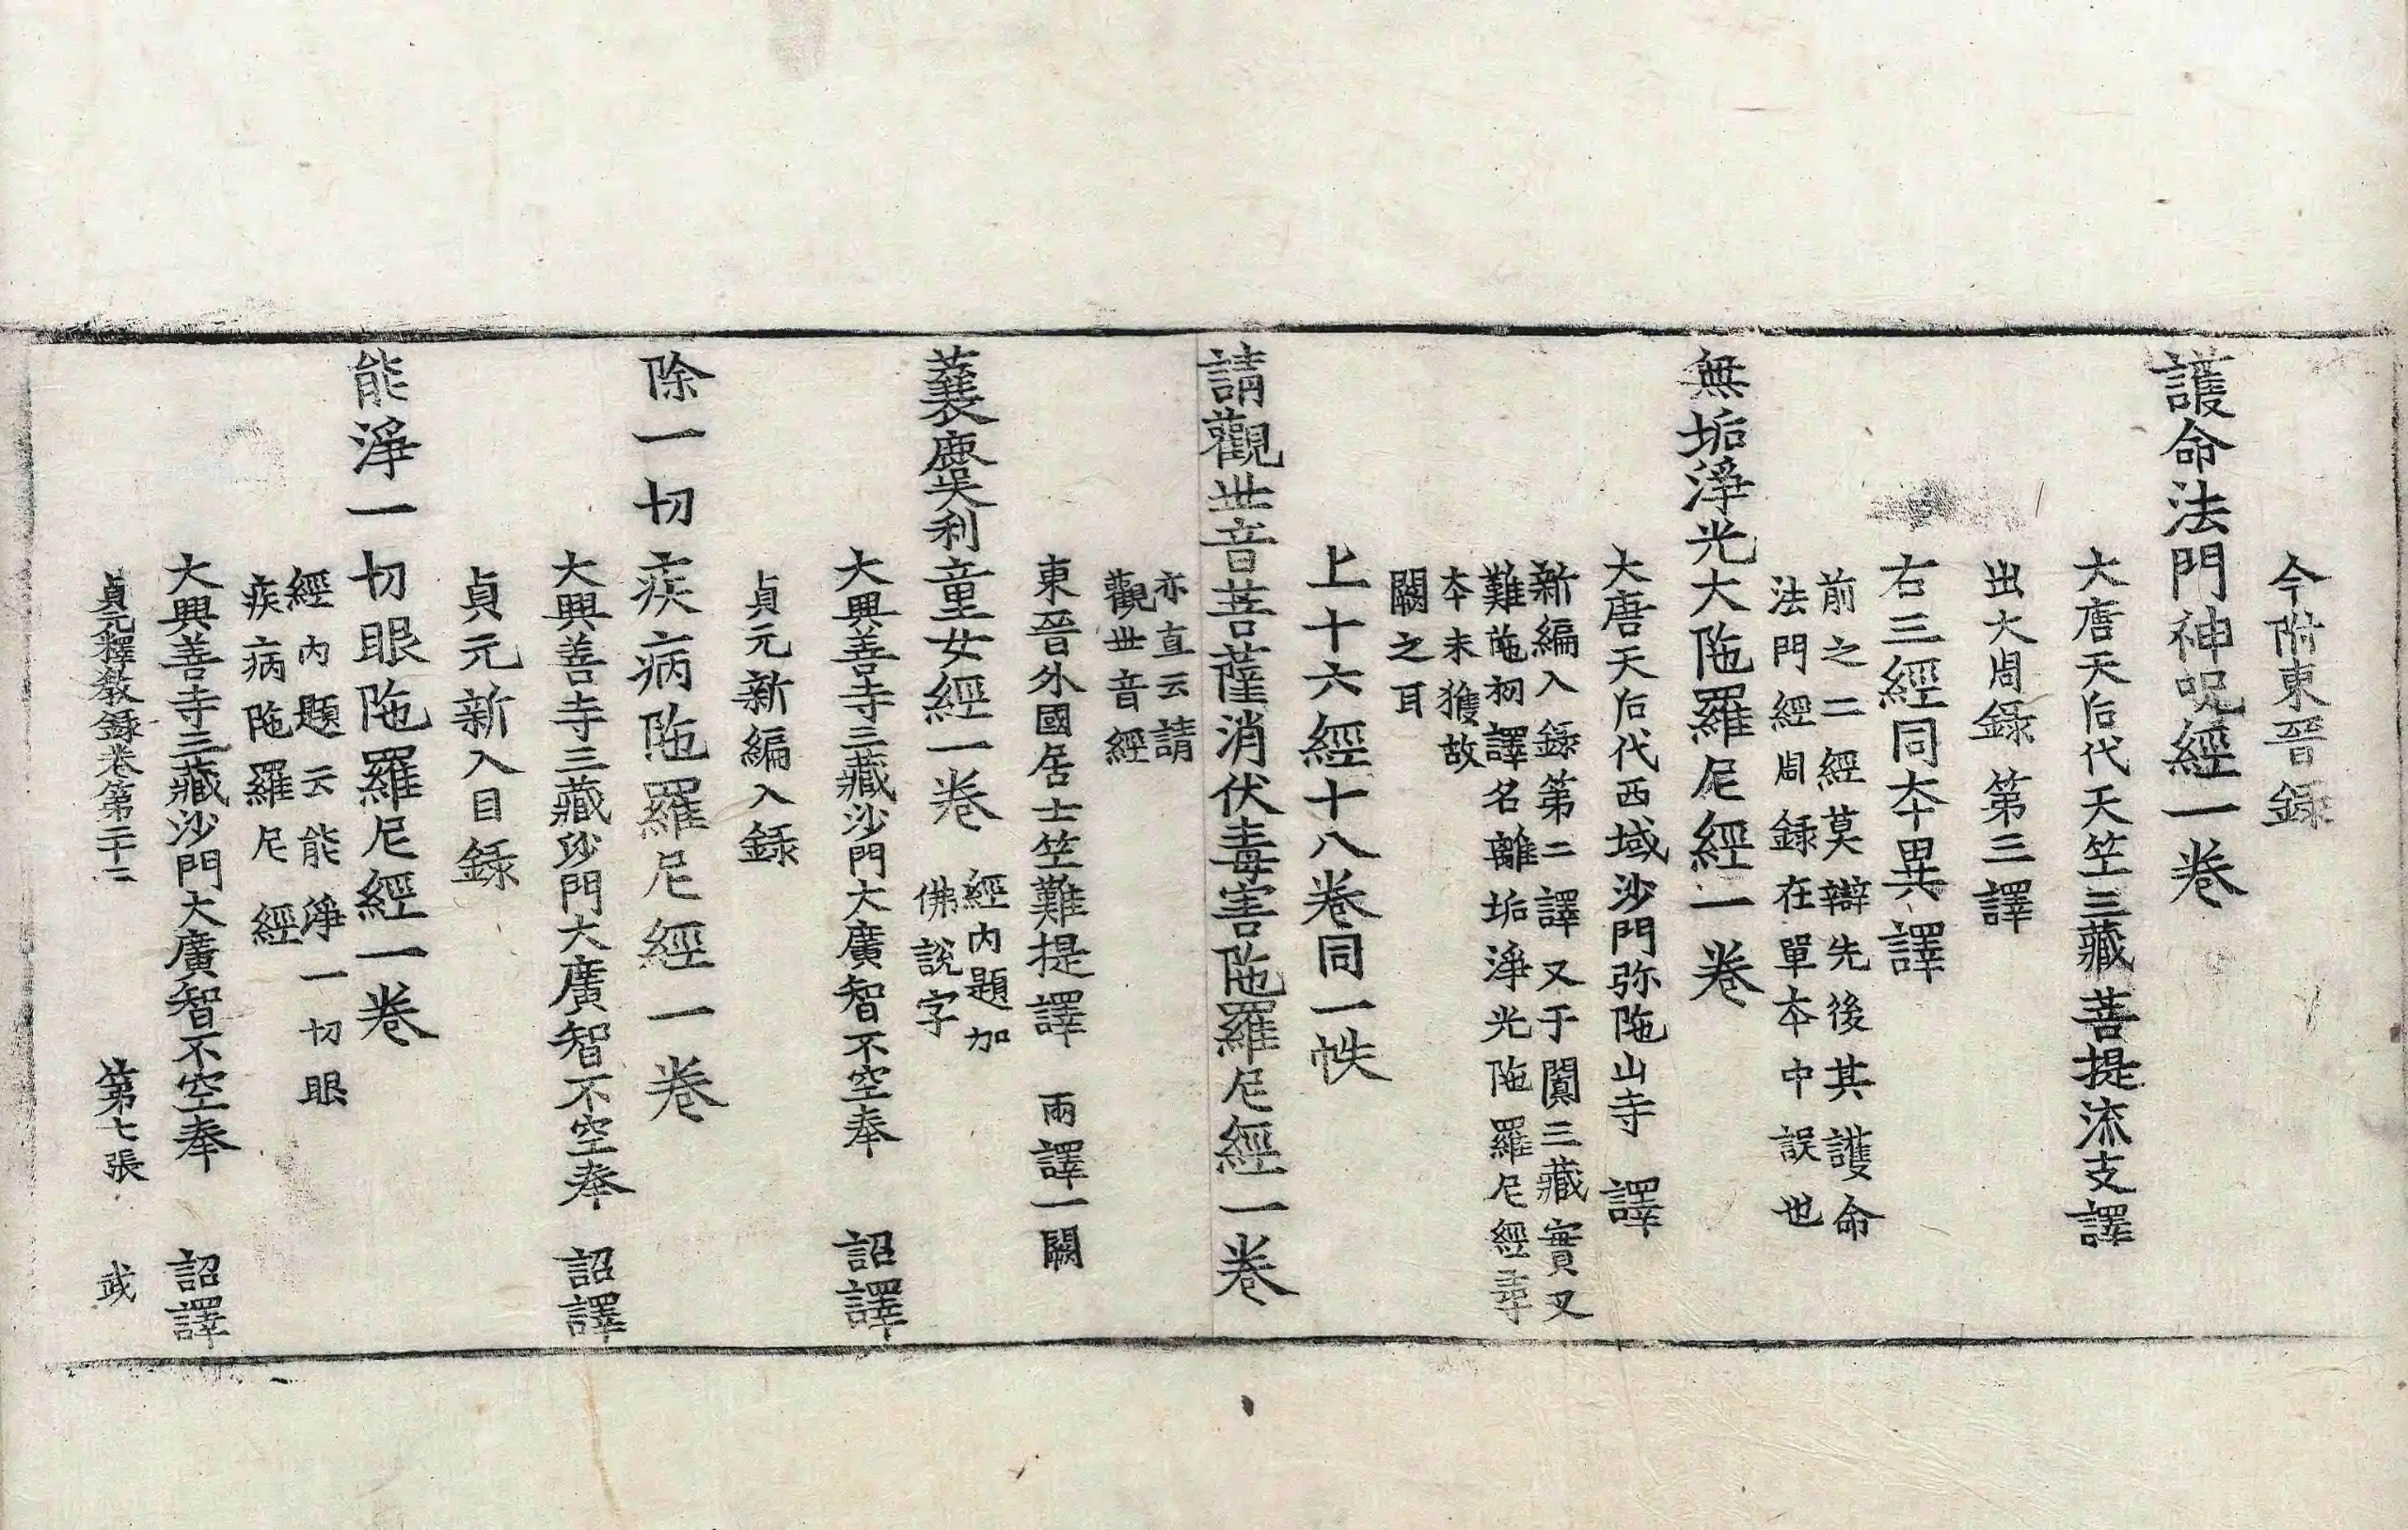 今附東晉録
護命法門神呪經一卷
大唐天后代天竺三藏菩提流支譯
出大周録第三譯
右三經同本異譯
前之二經莫辯先後其護命
法門經周録在單本中誤也
無垢淨光大陁羅尼經一卷
大唐天后代西域沙門弥陁山寺譯
新編入錄第二譯又于闐三藏實叉
難陁初譯名離垢淨光陁羅尼經尋
本未獲故
闕之耳
上十六經十八卷同一帙
請觀世音菩薩消伏毒害陁羅尼經一卷
亦直云請
觀世音經
東晉外國居士竺難提譯 兩譯一闕
蘘麌哩童女經一卷
經内題加
佛說字
大興善寺三藏沙門大廣智不空奉 詔譯
貞元新編入錄
除一切疾病陁羅尼經一卷
大興善寺三藏沙門大廣智不空奉 詔譯
貞元新入目録
能淨一切眼陁羅尼經一卷
經内題云能淨一切眼
疾病陁羅尼經
大興善寺三藏沙門大廣智不空奉 詔譯
貞元釋教錄卷第二十二 第七張 武